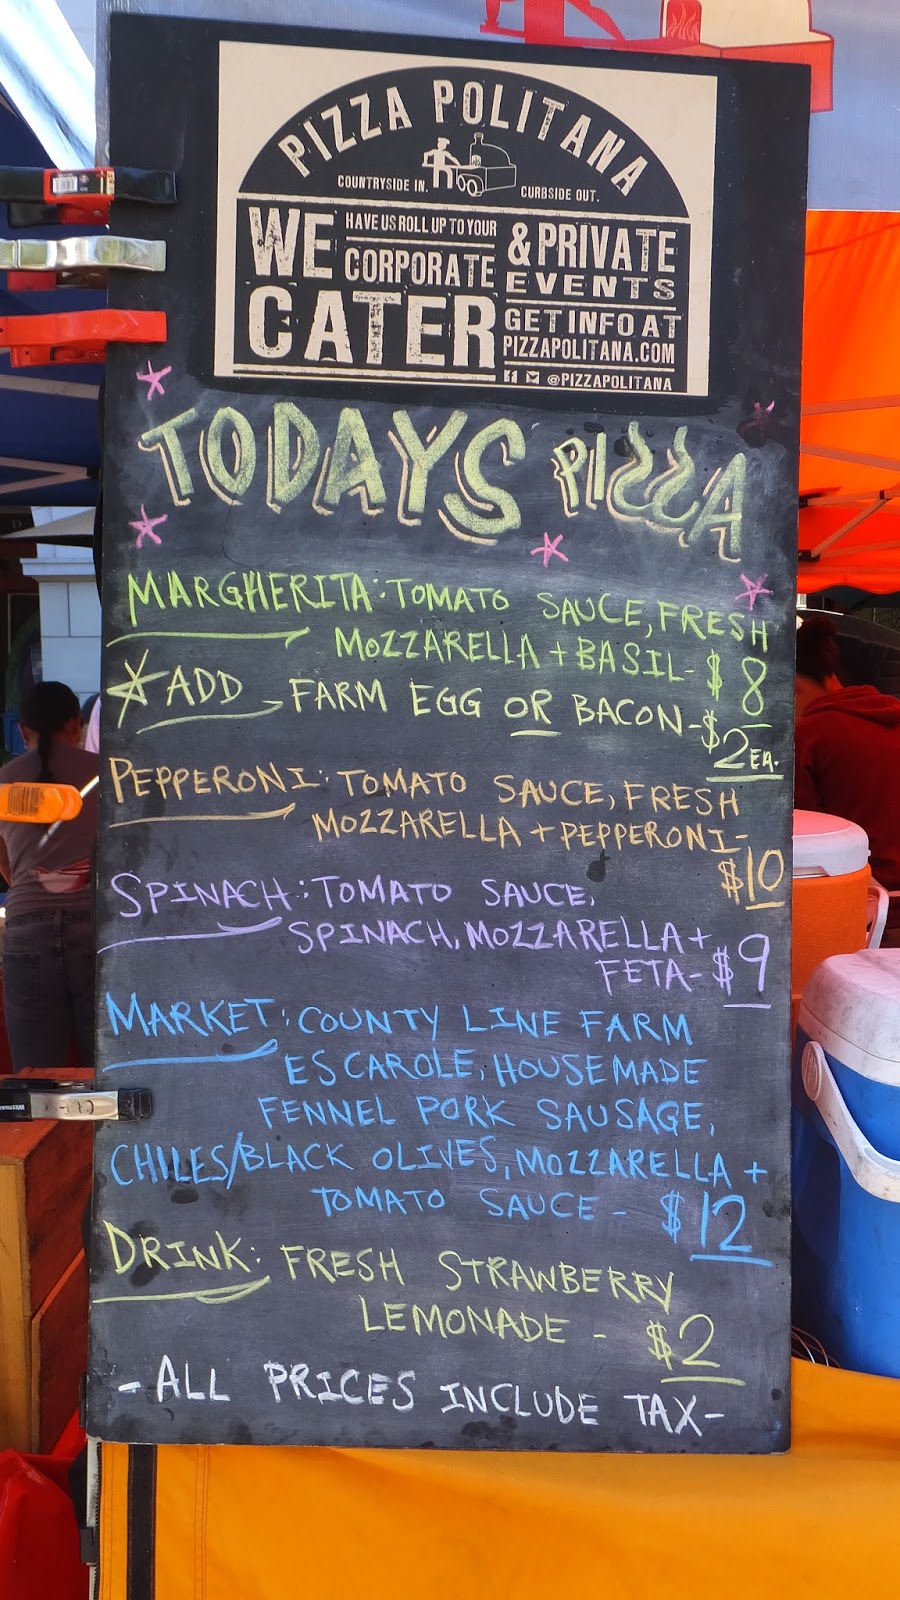 PIZZA POLITANA
COUNTRYSIDE IN. CURBSIDE OUT.
WE
CATER
HAVE US ROLL UP TO YOUR
CORPORATE
& PRIVATE
EVENTS
GET INFO AT
PIZZAPOLITANA.COM
@PIZZAPOLITANA
TODAYS PIZZA
MARGHERITA: TOMATO SAUCE, FRESH
MOZZARELLA + BASIL - $8
ADD - FARM EGG OR BACON - $2 EA.
PEPPERONI: TOMATO SAUCE, FRESH
MOZZARELLA + PEPPERONI -
$10
SPINACH: TOMATO SAUCE,
SPINACH, MOZZARELLA +
FETA - $9
MARKET: COUNTY LINE FARM
ESCAROLE, HOUSEMADE
FENNEL PORK SAUSAGE,
CHILES/BLACK OLIVES, MOZZARELLA +
TOMATO SAUCE - $12
DRINK: FRESH STRAWBERRY
LEMONADE - $2
- ALL PRICES INCLUDE TAX -